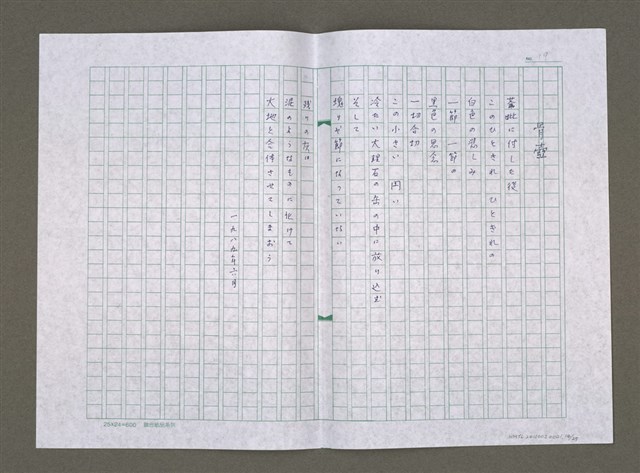 骨壺
荼毗に付した後
このひときれ ひときれの
白色の悲しみ
一節 一節の
黒色の思念
一切合切
この小さい 円い
冷たい大理石の缶の中に放り込む
そして
塊りや節になっていない
残りの灰は
泥のようなものに化けて
大地と合体させてしまおう
一九八九年六月
25X24=600